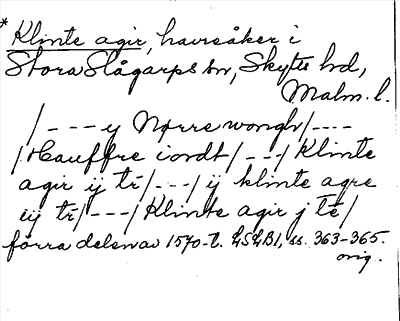 * Klinte agir, havreåker i
Stora Slågarps sn, Skytts hd,
Malm. l.
/---ij Nørre wongh/----
/Hauffre iordt/---/ Klinte
agir ij tr/---/ ij klinte agre
iij tr/---/ Klinte agir j te/
förra delen av 1570-t. LSLB1, ss. 363-365.
orig.